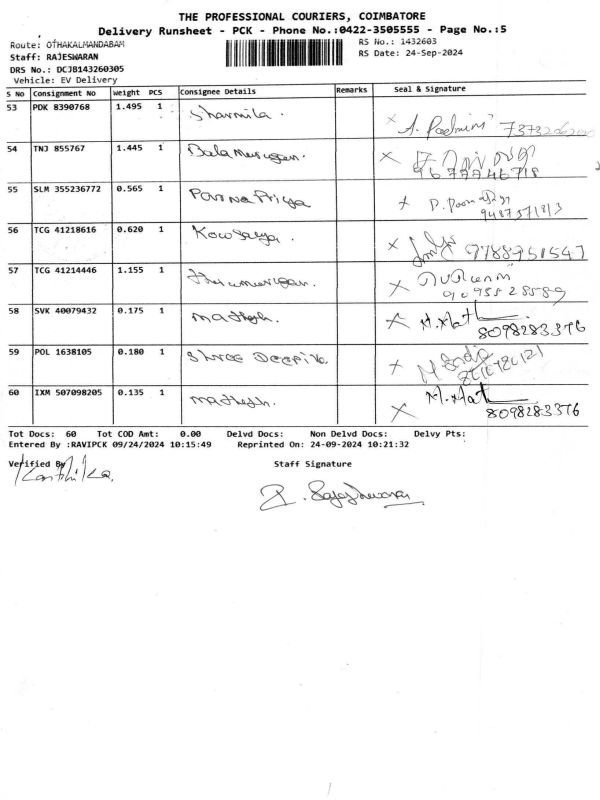 THE PROFESSIONAL COURIERS, COIMBATORE
Delivery Runsheet - PCK - Phone No.:0422-3505555 - Page No.:5
Route: OTHAKALMANDABAM RS No.: 1432603
Staff: RAJESWARAN RS Date: 24-Sep-2024
DRS No.: DCJB143260305
Vehicle: EV Delivery
S No Consignment No Weight PCS Consignee Details Remarks Seal & Signature
53 PDK 8390768 1.495 1 Sharmila.
54 TNJ 855767 1.445 1 Balamurugan.
9677746718
55 SLM 355236772 0.565 1 Poorna Priya
56 TCG 41218616 0.620 1 Kowsalya. 9788951547
57 TCG 41214446 1.155 1
9095528589
58 SVK 40079432 0.175 1 Mathesh.
8098283376
59 POL 1638105 0.180 1 Shree Deepika
60 IXM 507098205 0.135 1 Mathesh.
8098283376
Tot Docs: 60 Tot COD Amt: 0.00 Delvd Docs: Non Delvd Docs: Delvy Pts:
Entered By :RAVIPCK 09/24/2024 10:15:49 Reprinted On: 24-09-2024 10:21:32
Verified By Staff Signature
Karthika.